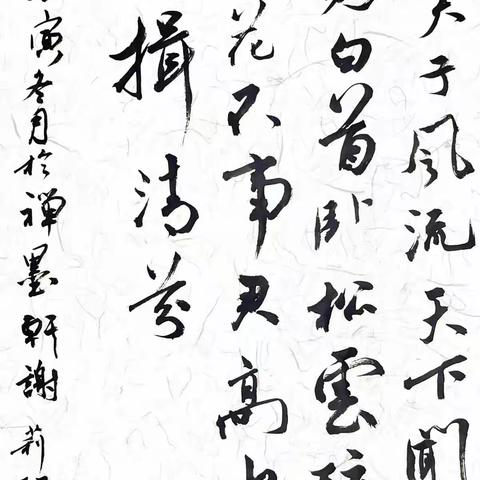 夫子风流天下聞
白首卧松雲醉
花不事君高
揖清芬
寅冬月於禪墨軒謝莉